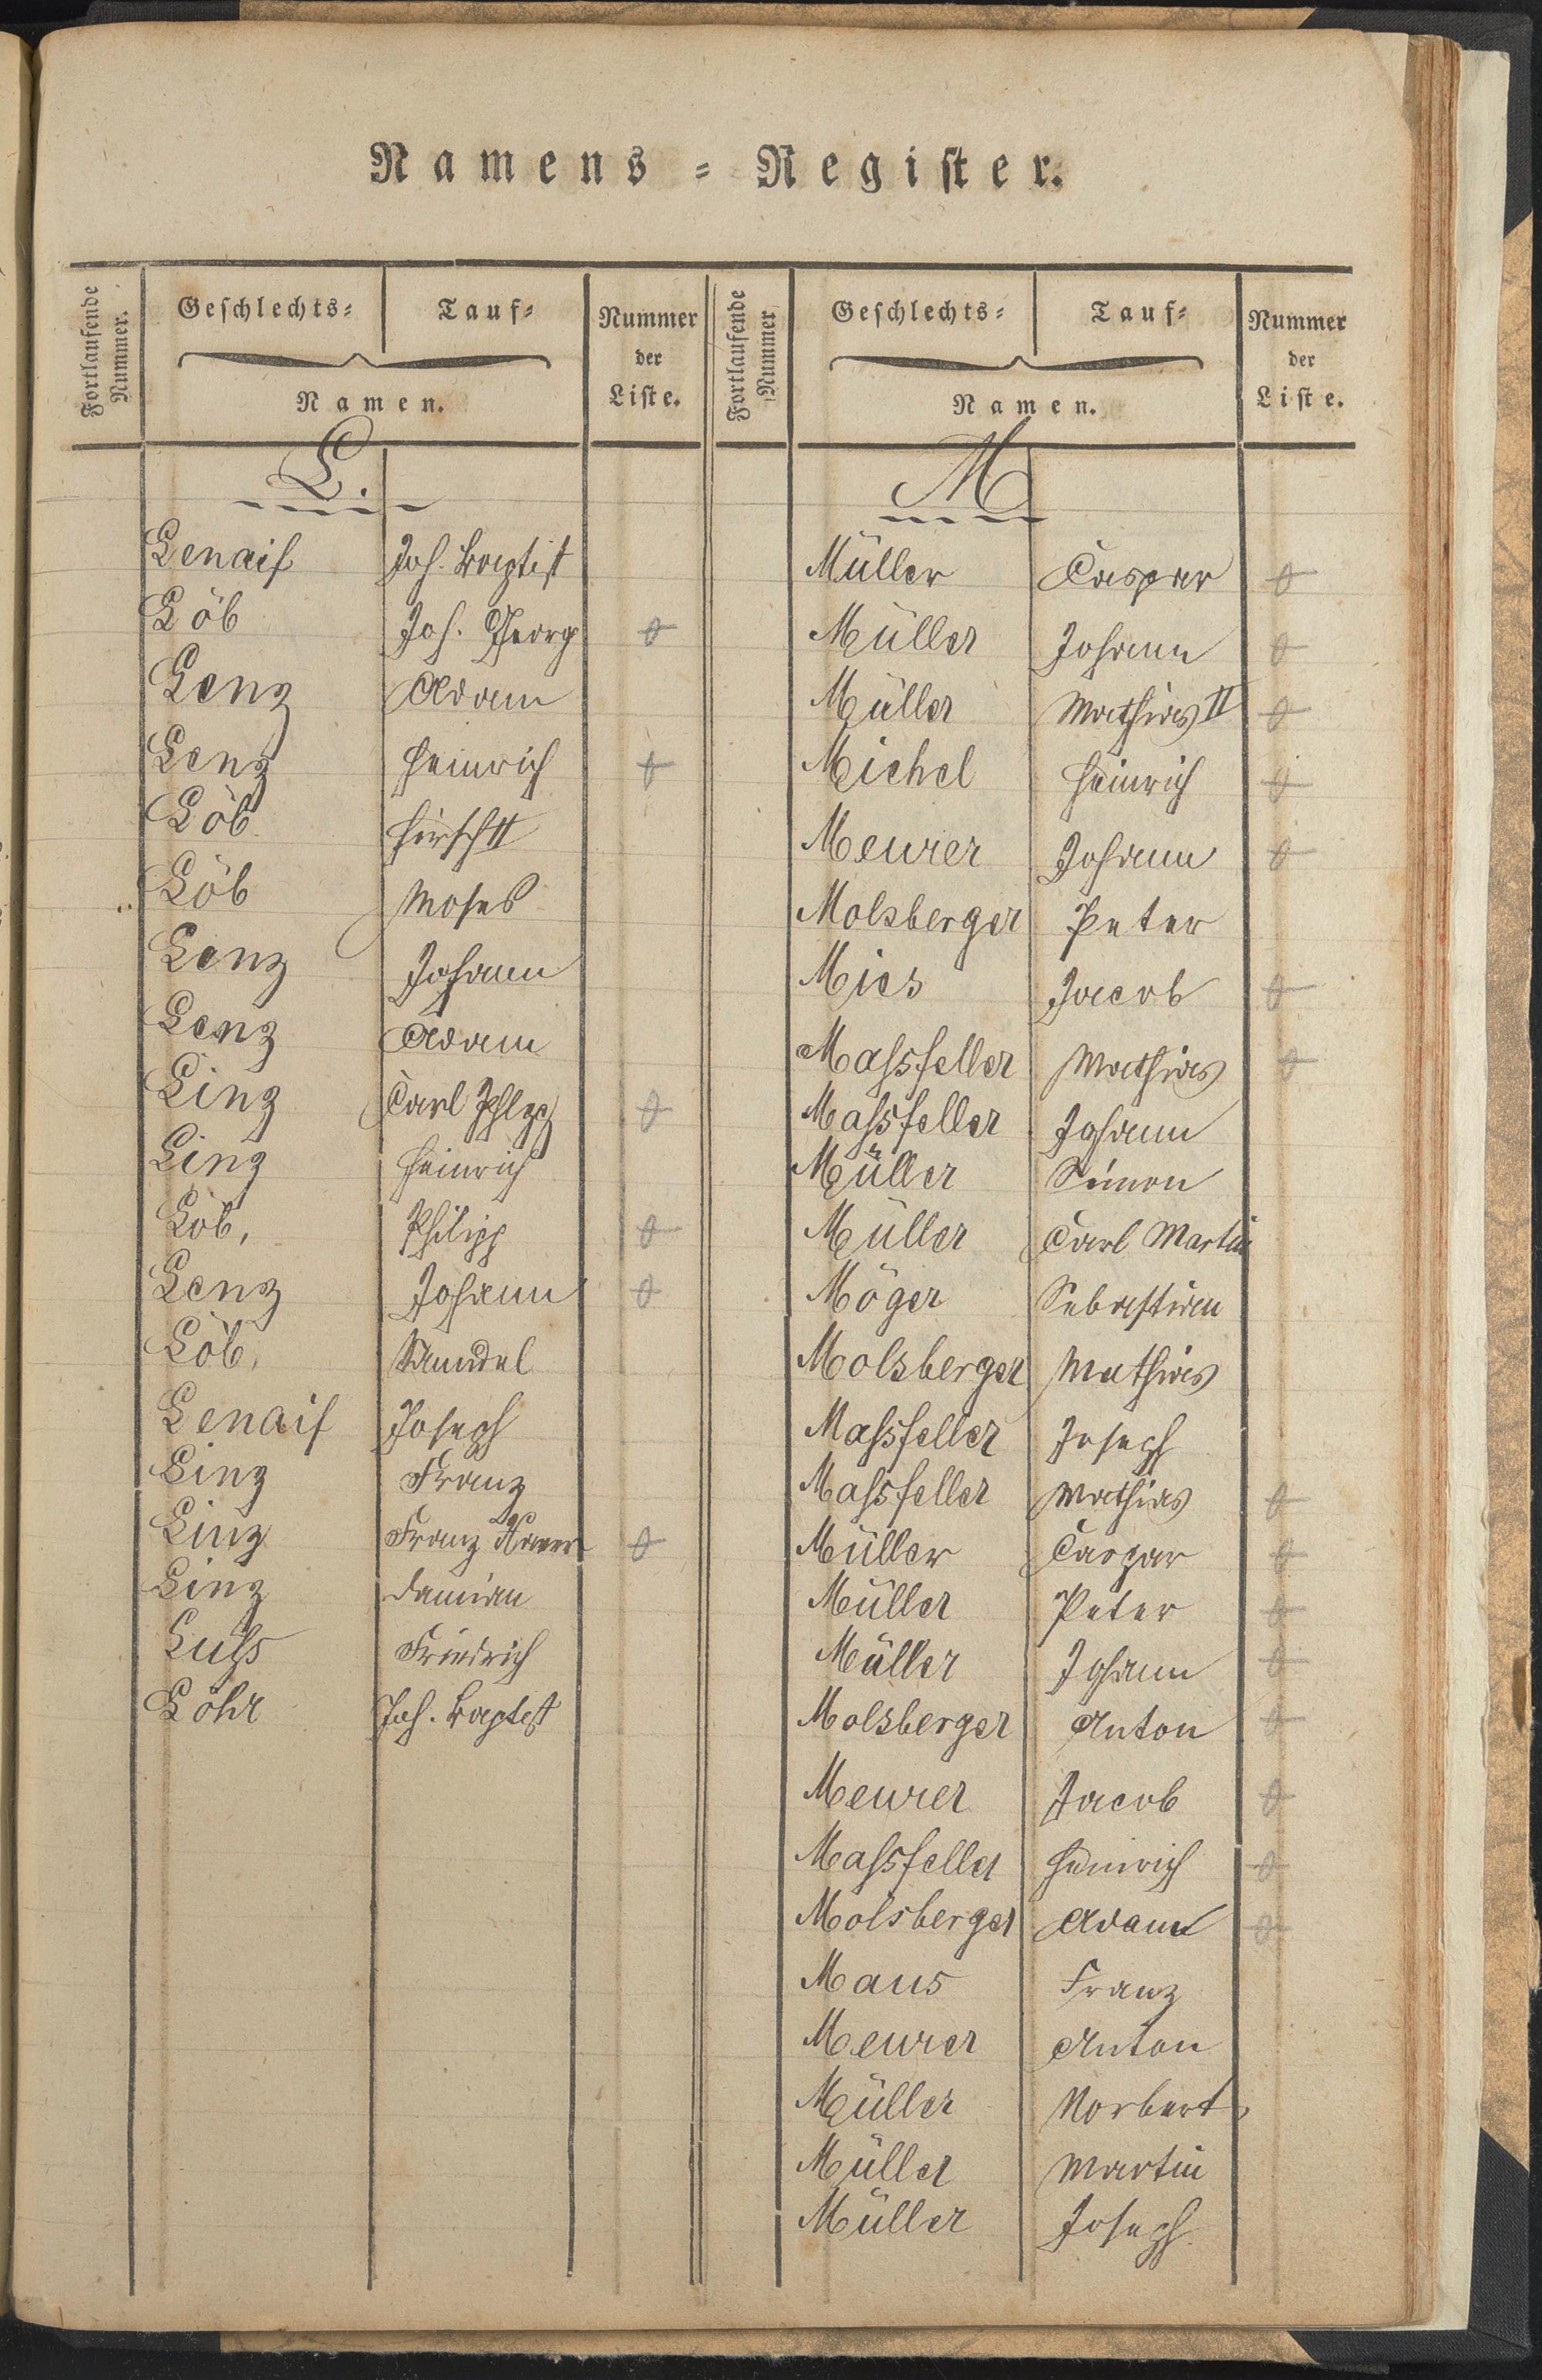 Namens=Register.
Fortlaufende Nummer.
Geschlechts=
Tauf=
Namen.
Nummer der Liste.
L.
Lenaif Joh. Baptist
Löb Joh. Georg
Lenz Adam
Lenz Heinrich
Löb Hirsch II
Löb Moses
Lenz Johann
Lenz Adam
Linz Carl
Linz Heinrich
Löb, Philipp
Lenz Johann
Löb, Mendel
Lenaif Joseph
Linz Franz
Linz Franz
Linz Damian
Luhs Friedrich
Löhr Joh. Baptist
Fortlaufende Nummer
Geschlechts=
Tauf=
Namen.
Nummer der Liste.
M
Müller Casper
Müller Johann
Müller Mathias II
Michel Heinrich
Meurer Johann
Molsberger Peter
Mies Jacob
Massfeller Mathias
Massfeller Johann
Müller Simon
Müller Carl Martin
Möger Sebastian
Molsberger Mathias
Massfeller Joseph
Massfeller Mathias
Müller Caspar
Müller Peter
Müller Johann
Molsberger Anton
Meurer Jacob
Massfeller Heinrich
Molsberger Adam
Maus Franz
Meurer Anton
Müller Norbert
Müller Martin
Müller Joseph